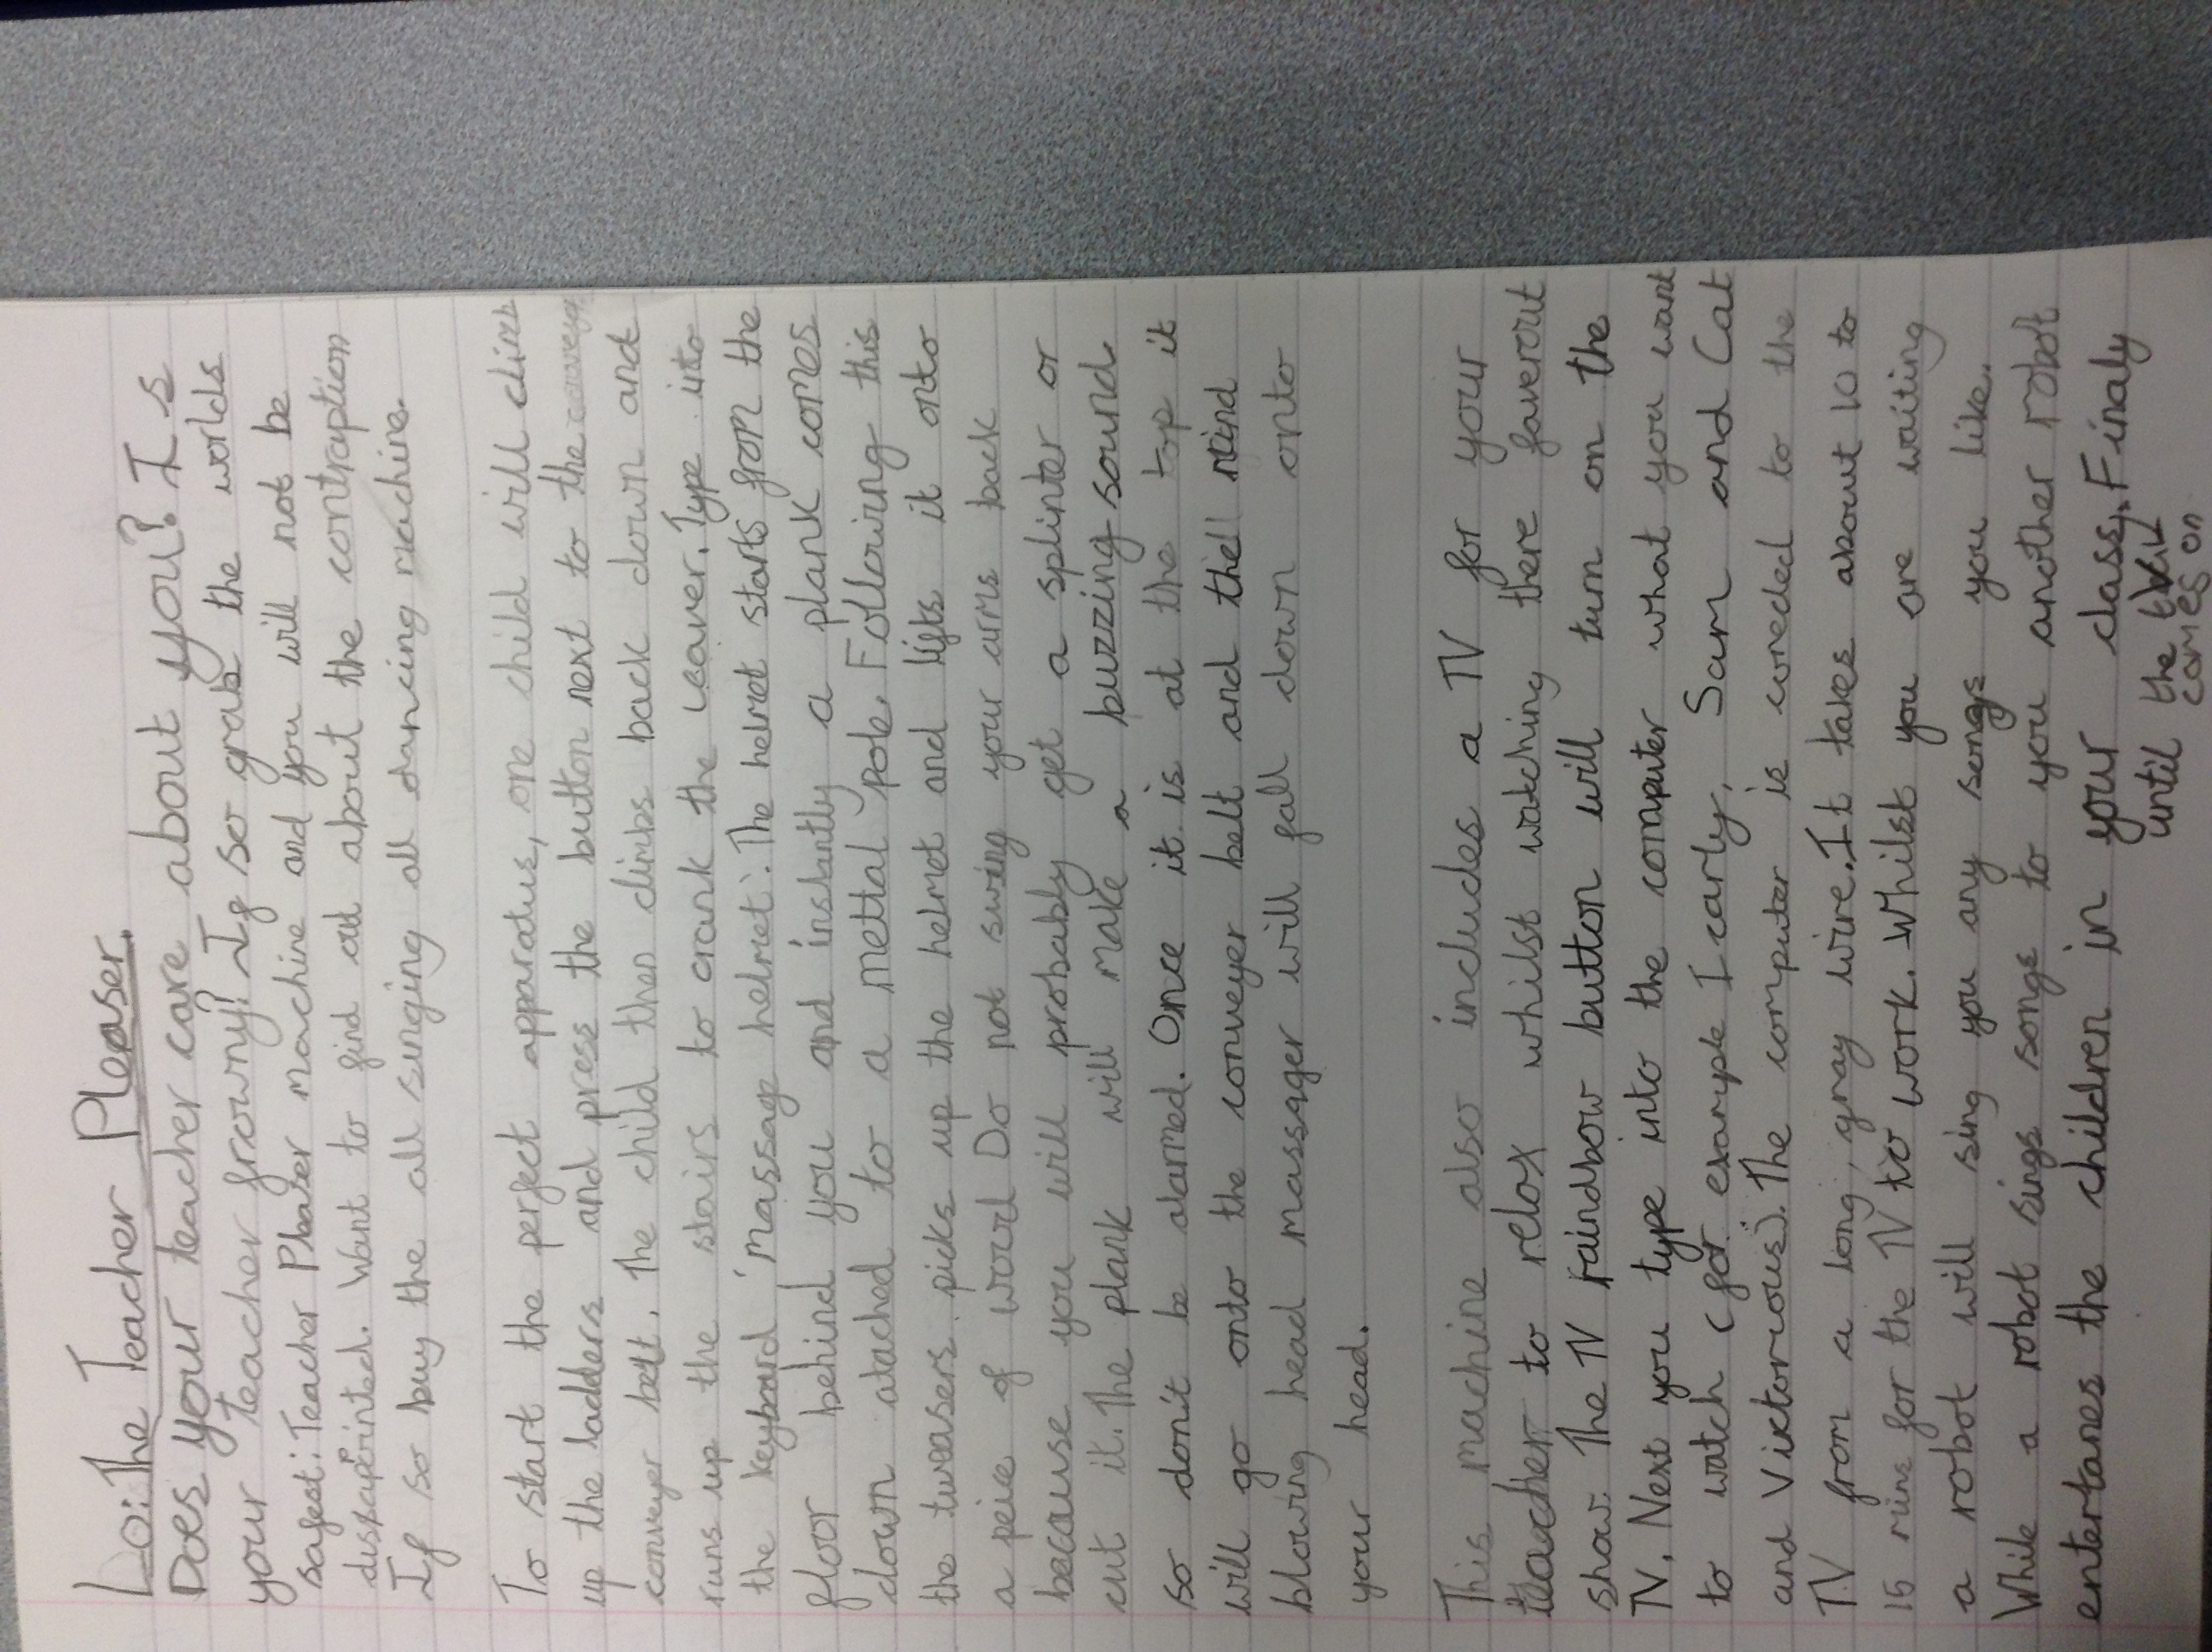 Lo: The Teacher Pleaser.
Does your teacher care about you? Is
your teacher frowny! If so grab the worlds
safest: Teacher Pleaser machine and you will not be
dissapointed. Want to find out about the contraption
If so buy the all singing all dancing machine.
To start the perfect apparatus, one child will climb
up the ladders and press the button next to the
conveyer belt. The child then climbs back down and
runs up the stairs to crank the leaver. Type into
the keyboard 'massage helmet'. The helmet starts from the
floor behind you and instantly a plank comes
down atached to a mettal pole. Following this
the tweasers picks up the helmet and lifts it onto
a peice of wood Do not swing your arms back
because you will probably get a splinter or
cut it. The plank will make a buzzing sound
so don't be alarmed. Once it is at the top it
will go onto the conveyer belt and the mind
blowing head massager will fall down onto
your head.
This machine also includes a TV for your
teacher to relax whilst watching there faverout
show. The TV raindbow button will turn on the
TV. Next you type into the computer what you want
to watch (for example I carly, Sam and Cat
and Victorious). The computer is conected to the
TV from a long, gray wire. It takes about 10 to
15 mins for the TV to work. Whilst you are waiting
a robot will sing you any songs you like.
While a robot sings songs to you another robot
entertanes the children in your class. Finaly
until the
comes on